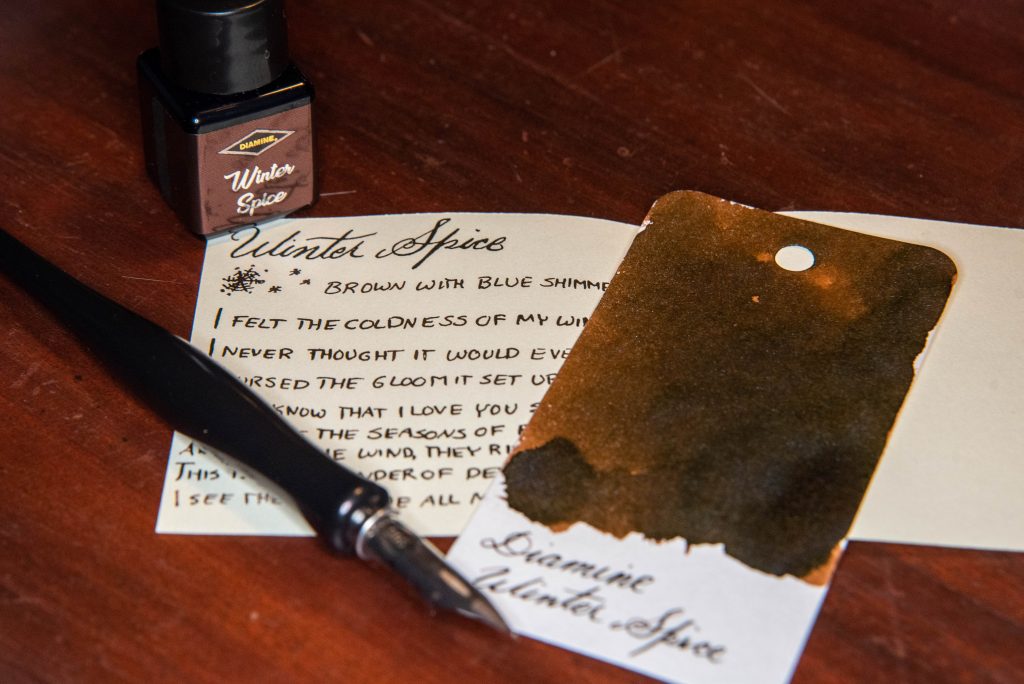 DIAMINE
Winter
Spice
Winter Spice
BROWN WITH BLUE SHIMME
I FELT THE COLDNESS OF MY WIN
I NEVER THOUGHT IT WOULD EVE
URSED THE GLOOM IT SET UP
KNOW THAT I LOVE YOU S
THE SEASONS OF
WIND, THEY RI
THIS OF DE
I SEE THE ALL
Diamine
Winter Spice